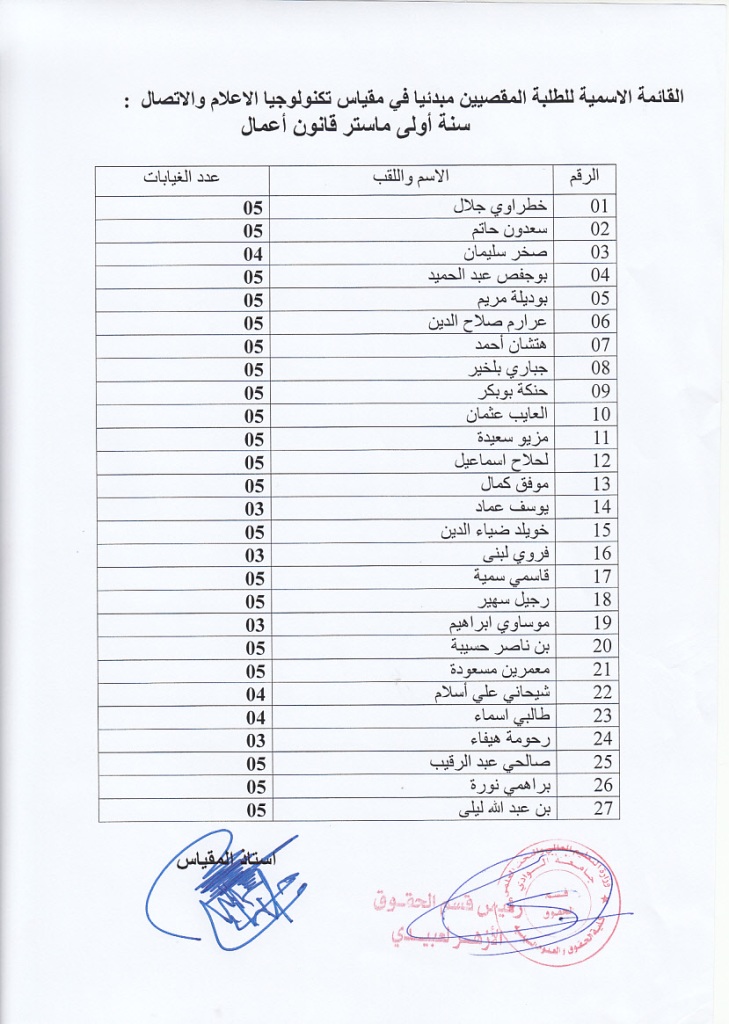 القائمة الاسمية للطلبة المقصيين مبدئيا في مقياس تكنولوجيا الاعلام والاتصال :
سنة أولى ماستر قانون أعمال
الرقم الاسم واللقب عدد الغيابات
01 خطراوي جلال 05
02 سعدون حاتم 05
03 صخر سليمان 04
04 بوجفص عبد الحميد 05
05 بوديلة مريم 05
06 عرارم صلاح الدين 05
07 هتشان أحمد 05
08 جباري بلخير 05
09 حنكة بوبكر 05
10 العايب عثمان 05
11 مزيو سعيدة 05
12 لحلاح اسماعيل 05
13 موفق كمال 05
14 يوسف عماد 03
15 خويلد ضياء الدين 05
16 فروي لبنى 03
17 قاسمي سمية 05
18 رجيل سهير 05
19 موساوي ابراهيم 03
20 بن ناصر حسيبة 05
21 معمرين مسعودة 05
22 شيحاني علي أسلام 04
23 طالبي اسماء 04
24 رحومة هيفاء 03
25 صالحي عبد الرقيب 05
26 براهمي نورة 05
27 بن عبد الله ليلى 05
استاذ المقياس
رئيس قسم الحقوق
الأزهر لعبيدي
وزارة التعليم العالي والبحث العلمي
جامعة الوادي
قسم
الحقوق
كلية الحقوق والعلوم السياسية